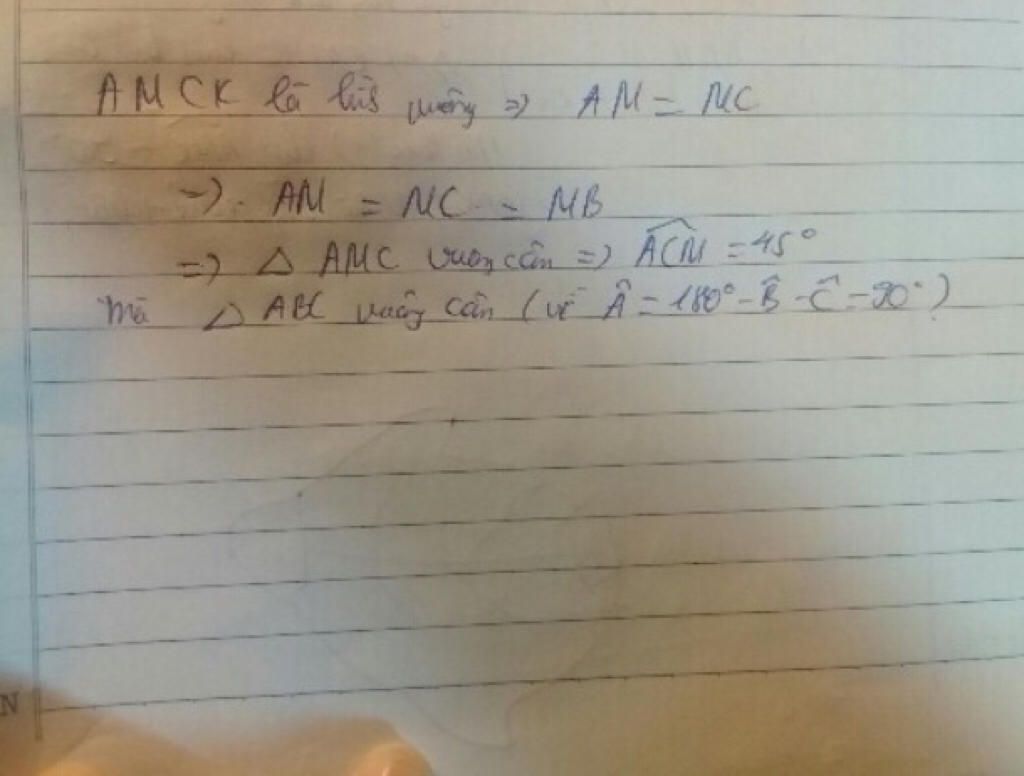 AMCK là hìs vuông => AM = MC
=> AM = MC = MB
=> △ AMC vuông cân => \widehat{ACM} = 45°
mà △ ABC vuông cân (vì Â = 180° - B̂ - Ĉ = 90°)
N